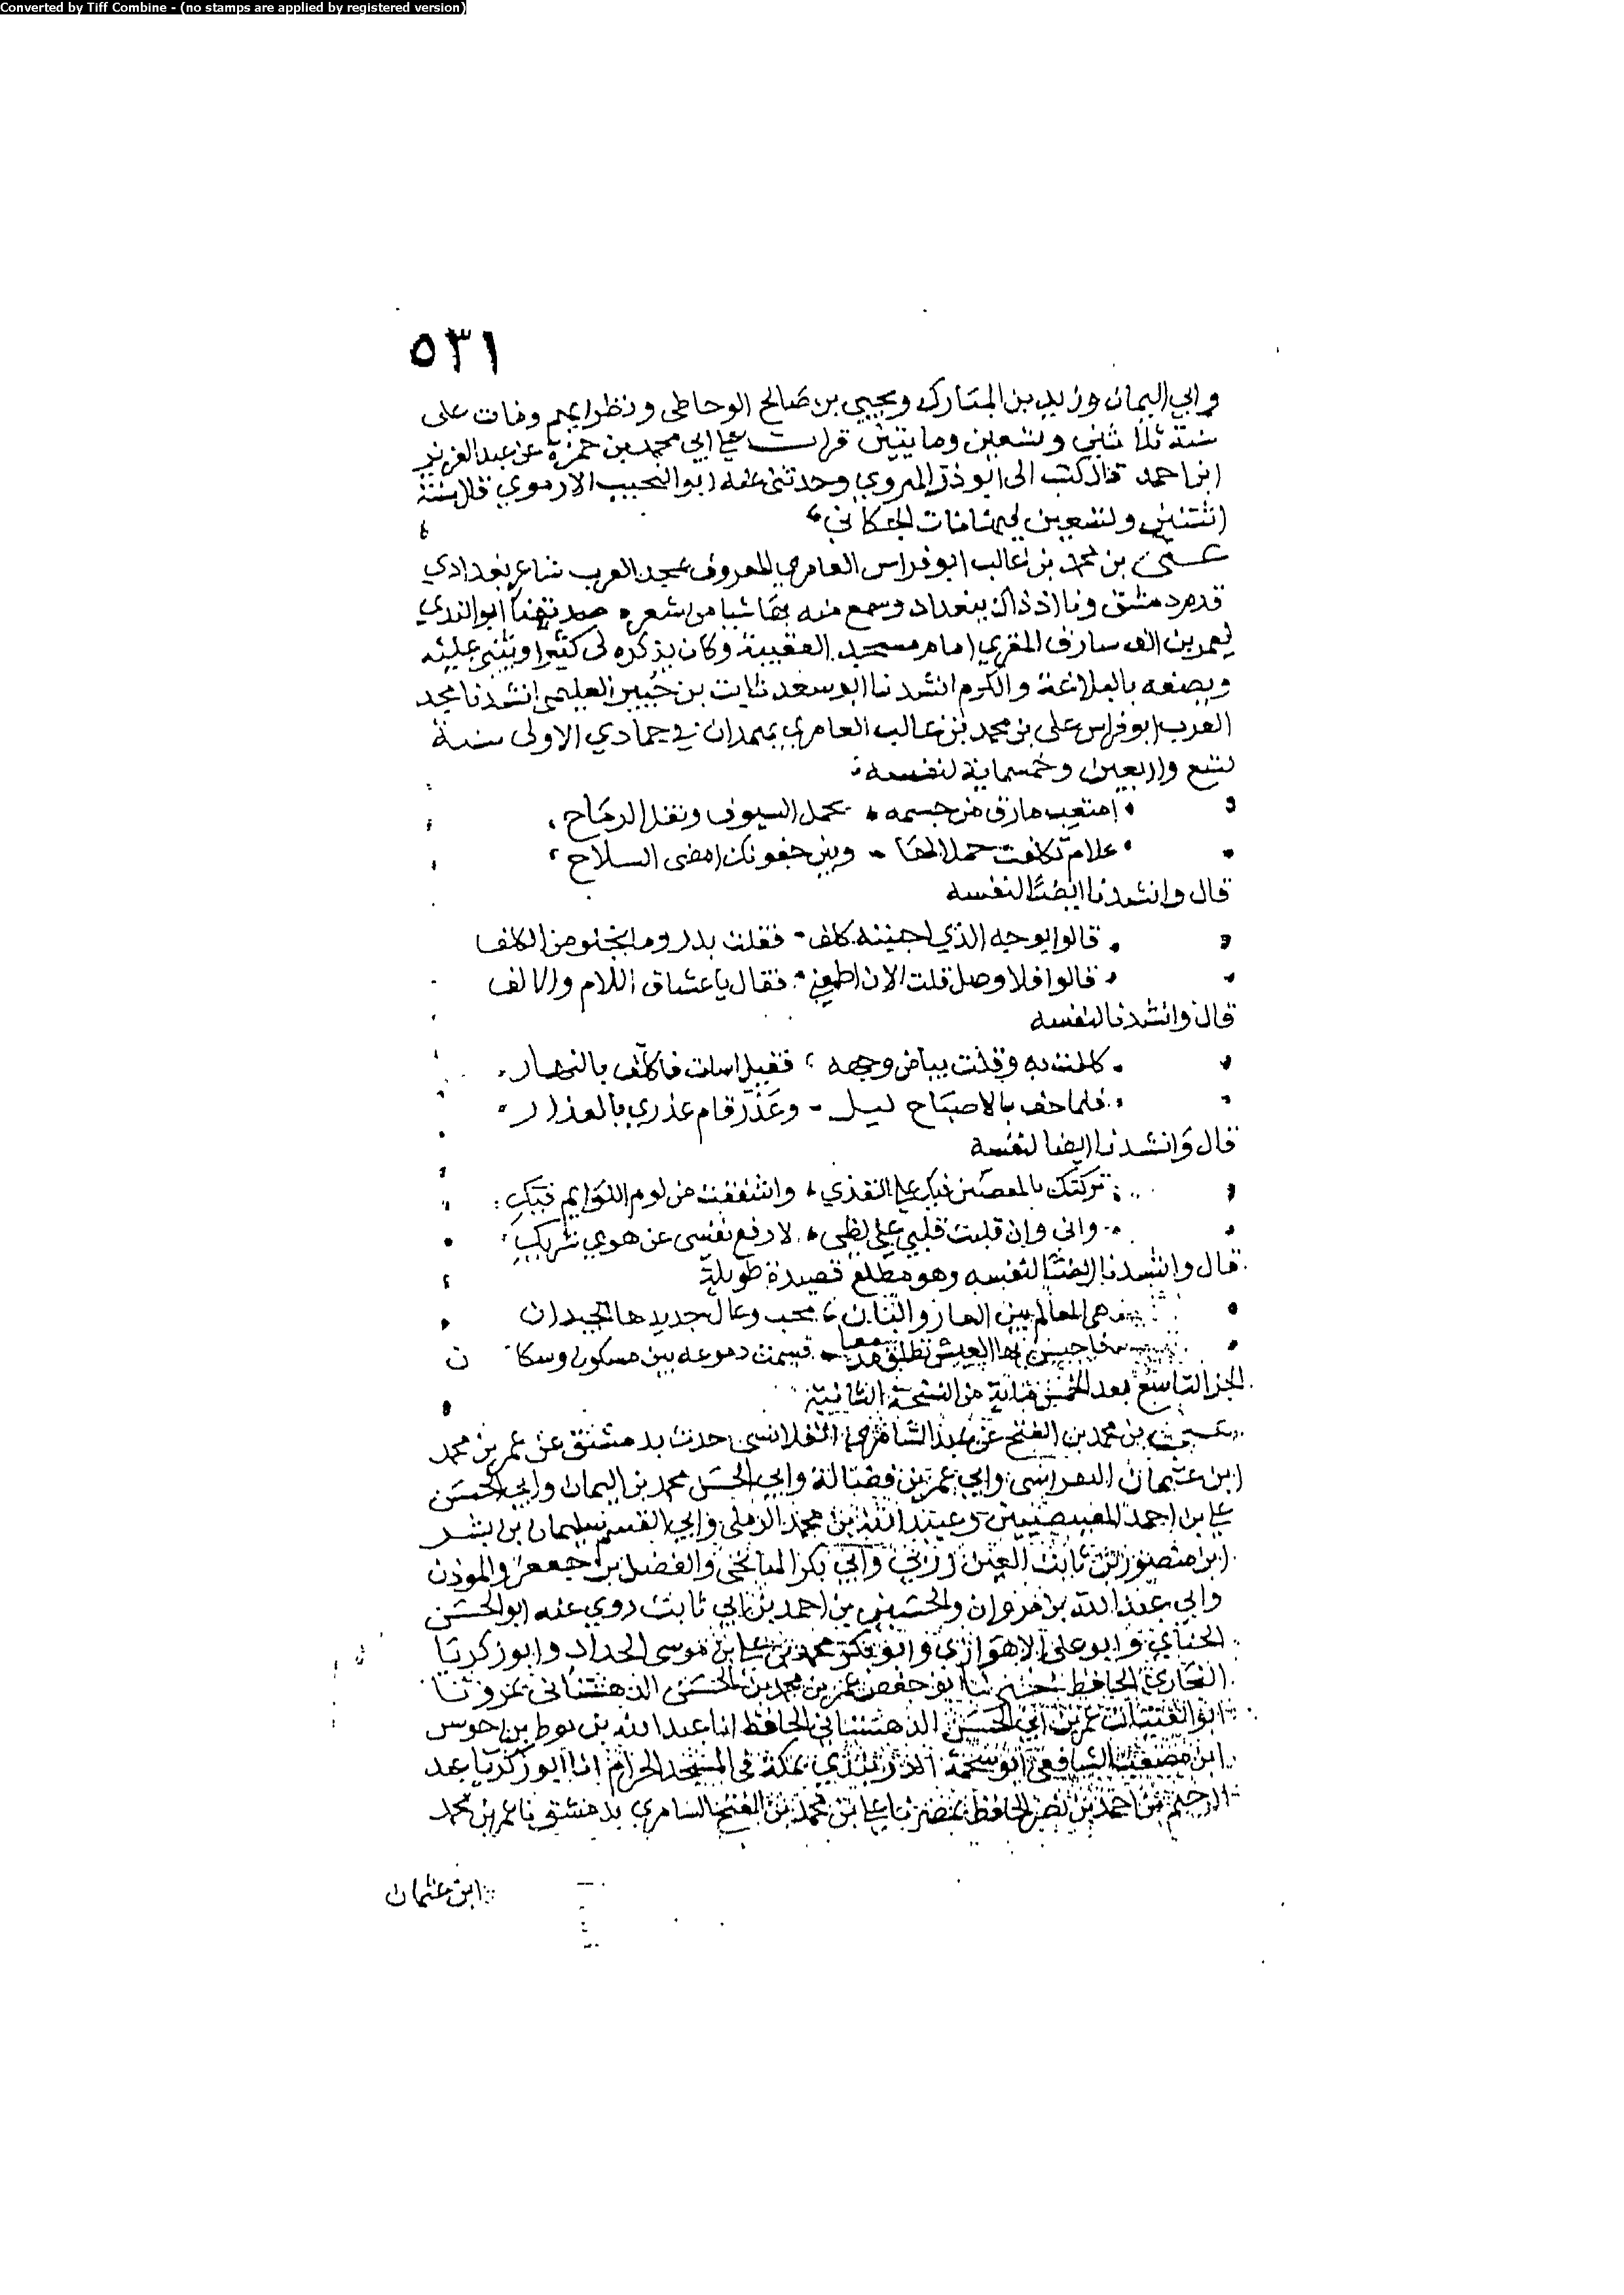 Converted by Tiff Combine - (no stamps are applied by registered version)
٥٣١
وابي اليمان وزيد بن المبارك ويحيى بن صالح الوحاظي ونظرايهم ومات على
سنة وتسعين ومايتين قرات على ابي محمد بن حمزة عن عبد العزيز
ابن احمد قال كتب الى ابوذر الهروي وحدثني عنه ابو النجيب الارموي قال سنة
اثنتين وتسعين مات الجكاني
علي بن محمد بن غالب ابو فراس العامري المعروف بمجد العرب شاعر بغدادي
قدم دمشق وانا اذ ذاك ببغداد وسمع منه بها شيا من شعره حدثنا ابو الندي
المقري امام مسجد العقيبة وكان يذكره لى كثيرا ويثني عليه
ويصفه بالبلاغة والكرم انشدنا ابو سعد ثابت بن انشدنا مجد
العرب ابو فراس على بن محمد بن غالب العامري بهمدان في جمادي الاولى سنة
تسع واربعين وخمسماية لنفسه
امتعب مارق من جسمه بحمل السيوف ونقل الرماح
علام تكلفت حملالها وبين جفونك امضى السلاح
قال وانشدنا ايضا لنفسه
قالوا بوجه الذي احببته كلف فقلت بدر وما يخلو من الكلف
قالوا فلا وصل قلت الان اطمعني فقال يا عشاق اللام والالف
قال وانشدنا لنفسه
كلفت به وقلت بياض وجهه فقيل اسات فاكلف بالنهار
فلما حف بالاصباح ليل وعذر قام عذري بالعذار
قال وانشدنا ايضا لنفسه
تركتك فيك على القذي من لوم اللوايم فيك
واني وان قلبت قلبي على لظى لارفع نفسي عن هوي شريك
قال وانشدنا ايضا لنفسه وهو مطلع قصيدة طويلة
هي المعالم بين والبان وعال جديدها الجديدان
بها العيش معا قسمت دموعه بين مسكوب
الجز التاسع بعد الخمس ماية من النسخة الثانية
على بن محمد بن الفتح السامري القلانسي حدث بدمشق عن عمر بن محمد
ابن عثمان وابي عمر بن فضالة وابي الحسن محمد بن اليمان وابي الحسن
علي بن احمد المصيصيين وعبد الله بن محمد الرملي وابي القسم سليمان بن بشر
ابن منصور بن ثابت العين زربي وابي بكر الميانجي والفضل بن جعفر والموذن
وابي عبد الله بن مروان والحسين بن احمد بن ابي ثابت روي عنه ابو الحسن
الحنائي وابو على الاهوازي وابو بكر محمد بن علي بن موسى الحداد وابو زكريا
البخاري الحافظ اخبرنا ابو حفص عمر بن محمد بن الحسن الدهستاني بمرو ثنا
ابو الفتيان عمر بن ابي الحسن الدهستاني الحافظ انا عبد الله بن
الشافعي بمكة في المسجد الحرام انا ابو زكريا عبد
الرحيم بن احمد بن نصر الحافظ بمصر نا علي بن محمد بن الفتح السامري بدمشق نا عمر بن محمد
ابن عثمان